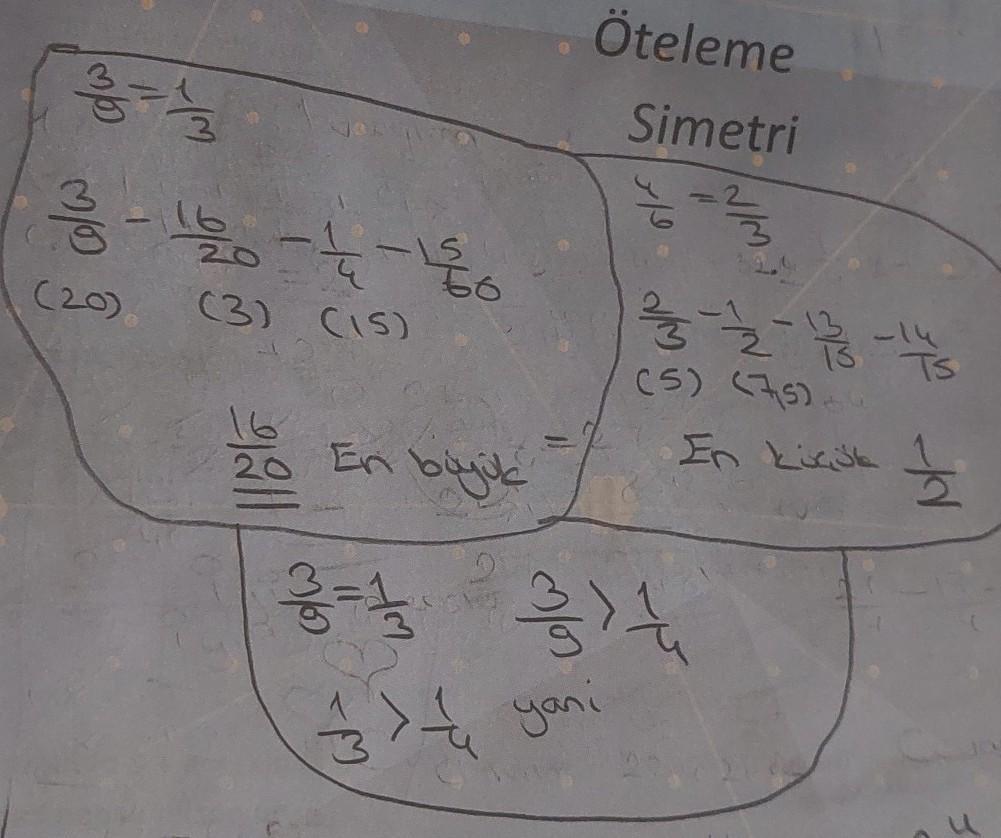 Öteleme
Simetri
3/9 = 1/3
3/9 - 16/20 - 1/4 - 15/60
(20) (3) (15)
16/20 En büyük =
4/6 = 2/3
2/3 - 1/2 - 13/15 - 14/15
(5) (7,5)
En küçük 1/2
3/9 = 1/3 3/9 > 1/4
1/3 > 1/4 yani